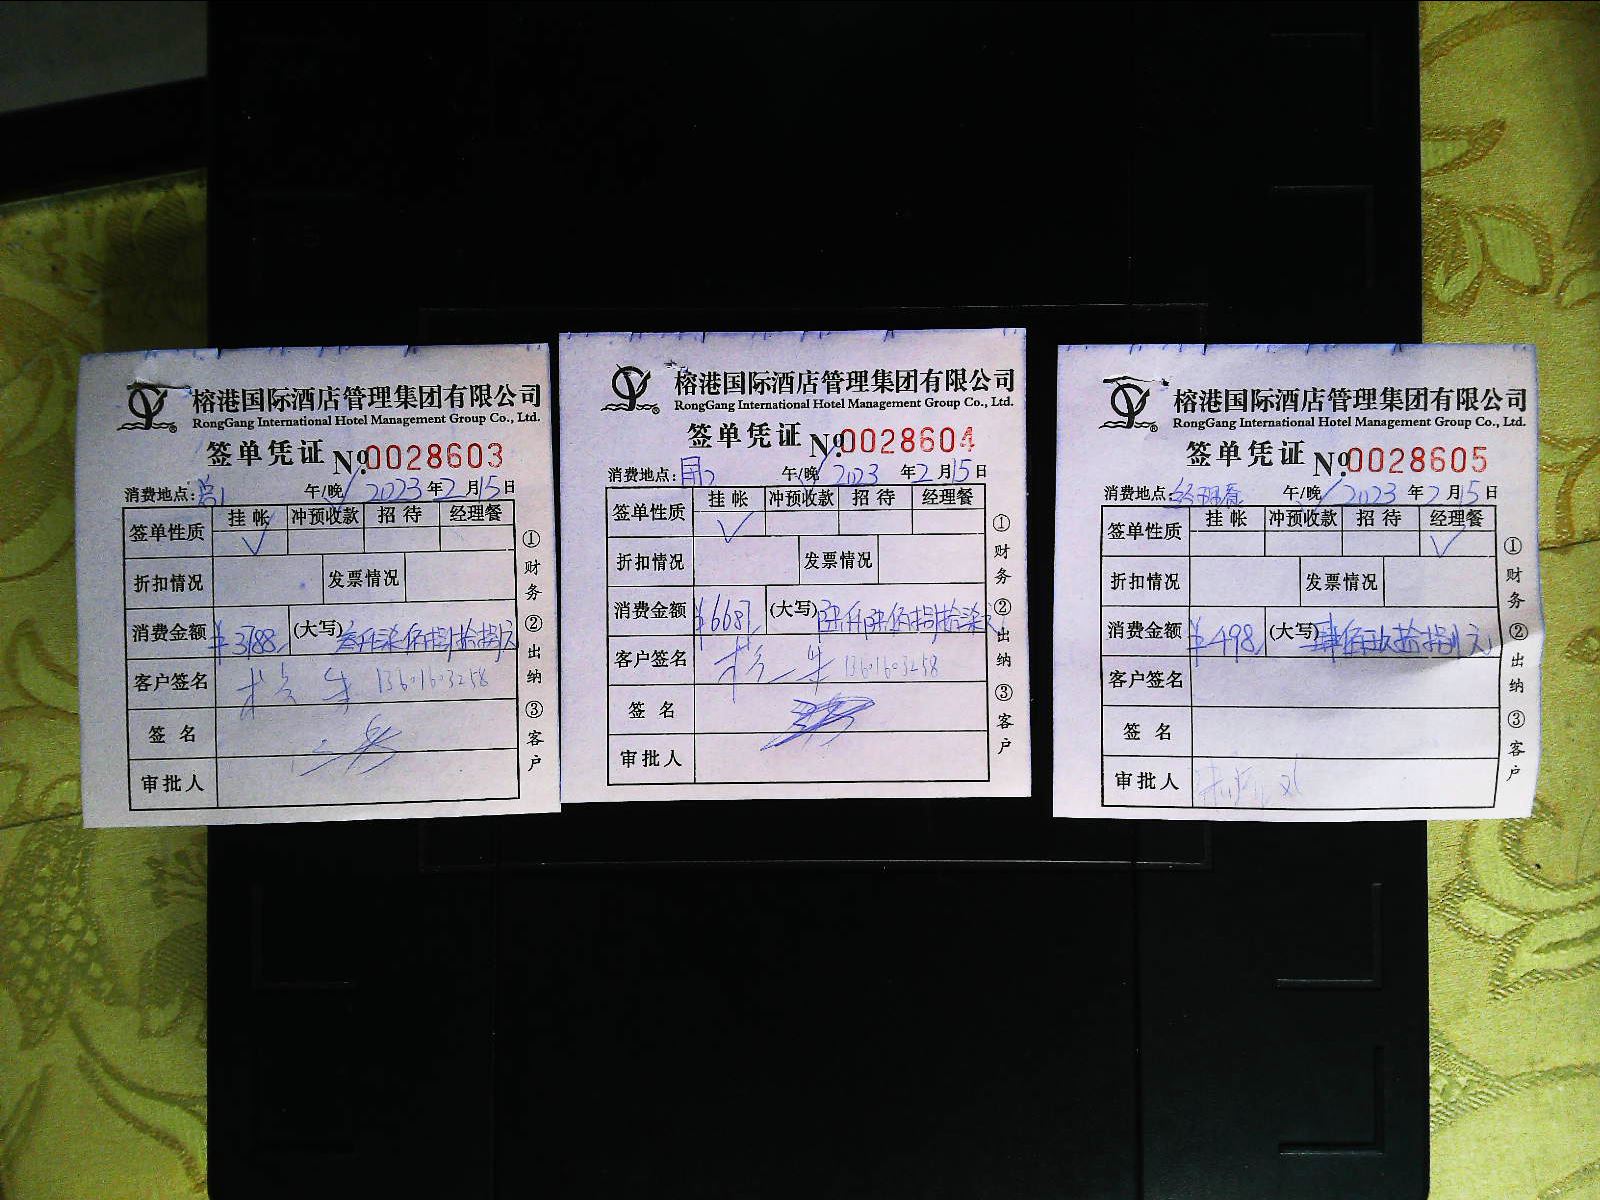 榕港国际酒店管理集团有限公司
RongGang International Hotel Management Group Co., Ltd.
签单凭证 №0028603
消费地点: 午/晚 2023 年 2 月 15 日
签单性质 挂帐 冲预收款 招待 经理餐
✓
折扣情况 发票情况
消费金额 ¥3788 (大写) 叁仟柒佰捌拾捌元
客户签名 13601603258
签名
审批人
①财务 ②出纳 ③客户
榕港国际酒店管理集团有限公司
RongGang International Hotel Management Group Co., Ltd.
签单凭证 №0028604
消费地点: 午/晚 2023 年 2 月 15 日
签单性质 挂帐 冲预收款 招待 经理餐
✓
折扣情况 发票情况
消费金额 ¥6687 (大写) 陆仟陆佰捌拾柒元
客户签名 13601603258
签名
审批人
①财务 ②出纳 ③客户
榕港国际酒店管理集团有限公司
RongGang International Hotel Management Group Co., Ltd.
签单凭证 №0028605
消费地点: 午/晚 2023 年 2 月 15 日
签单性质 挂帐 冲预收款 招待 经理餐
✓
折扣情况 发票情况
消费金额 ¥498 (大写) 肆佰玖拾捌元
客户签名
签名
审批人
①财务 ②出纳 ③客户